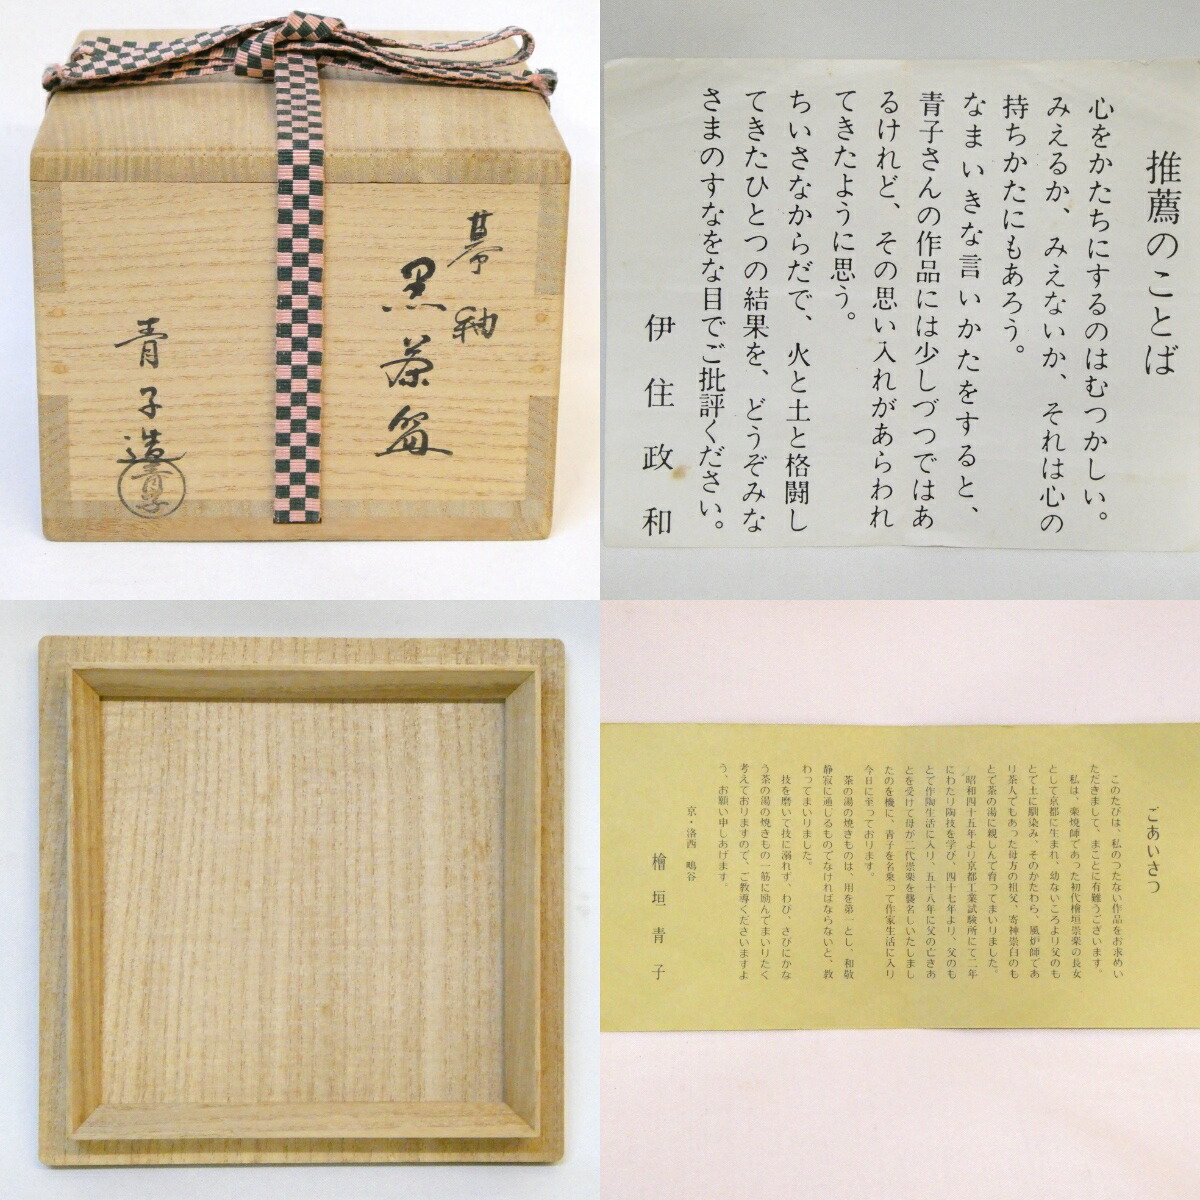 幕釉
黒茶盌
青子造
青子
推薦のことば
心をかたちにするのはむつかしい。
みえるか、みえないか、それは心の
持ちかたにもあろう。
なまいきな言いかたをすると、
青子さんの作品には少しづつではあ
るけれど、その思い入れがあらわれ
てきたように思う。
ちいさなからだで、火と土と格闘し
てきたひとつの結果を、どうぞみな
さまのすなをな目でご批評ください。
伊住政和
ごあいさつ
このたびは、私のつたない作品をお求めい
ただきまして、まことに有難うございます。
私は、楽焼師であった初代檜垣崇楽の長女
として京都に生まれ、幼ないころより父のも
とで土に馴染み、そのかたわら、風炉師であ
り茶人でもあった母方の祖父、寄神崇白のも
とで茶の湯に親しんで育ってまいりました。
昭和四十五年より京都工業試験所にて二年
にわたり陶技を学び、四十七年より、父のも
とで作陶生活に入り、五十八年に父の亡きあ
とを受けて母が二代崇楽を襲名いたしまし
たのを機に、青子を名乗って作家生活に入り
今日に至っております。
茶の湯の焼きものは、用を第一とし、和敬
静寂に通じるものでなければならないと、教
わってまいりました。
技を磨いて技に溺れず、わび、さびにかな
う茶の湯の焼きもの一筋に励んでまいりたく
考えておりますので、ご教導くださいますよ
う、お願い申しあげます。
京・洛西 鳴谷
檜垣青子